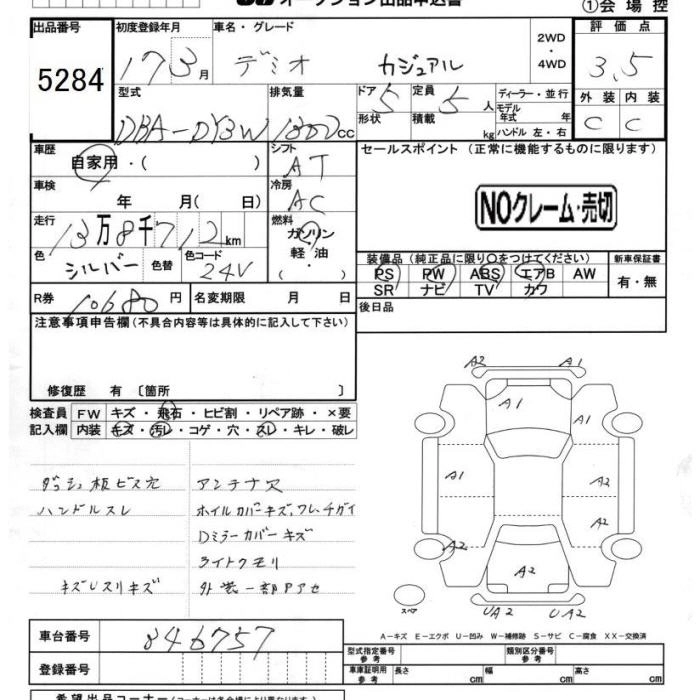 オークション出品申込書
①会場控
出品番号 初度登録年月 車名・グレード 2WD・4WD 評価点
5284 17 3月 デミオ カジュアル 3.5
型式 排気量 ドア 5 定員 5人 ディーラー・並行 外装 内装
DBA-DY3W 1300cc 形状 積載 kg モデル年式 年 C C
ハンドル 左・右
車歴 シフト セールスポイント (正常に機能するものに限ります)
自家用・( ) AT
車検 冷房
年 月( 日) AC
NOクレーム・売切
走行 燃料
13万8千712km ガソリン・軽油・
色 色替 色コード 装備品 (純正品に限り○をつけてください) 新車保証書
シルバー 24V PS PW ABS エアB AW 有・無
SR ナビ TV カワ
R券 10680円 名変期限 月 日 後日品
注意事項申告欄(不具合内容等は具体的に記入して下さい)
修復歴 有 〔箇所 〕
検査員 FW キズ・飛石・ヒビ割・リペア跡・×要
記入欄 内装 キズ・汚レ・コゲ・穴・スレ・キレ・破レ
ダッシュ板ビス穴 アンテナ欠
ハンドルスレ ホイルカバーキズ、ワレ、チガイ
Dミラーカバーキズ
ライトクモリ
キズUスリキズ 外装一部Pアセ
A2 A1
A1
A1 A2
A2
A2
スペア UA2 UA2
A-キズ E-エクボ U-凹み W-補修跡 S-サビ C-腐食 XX-交換済
車台番号 846757
登録番号
型式指定番号 参考 類別区分番号 参考
車車証明用 参考 長さ cm 幅 cm 高さ cm
希望出品コーナー